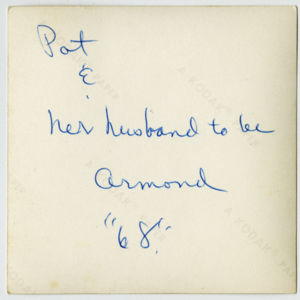 Pat
&
her husband to be
Armond
"68".